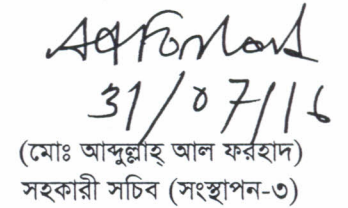 31/07/16
(মোঃ আব্দুল্লাহ্ আল ফরহাদ)
সহকারী সচিব (সংস্থাপন-৩)